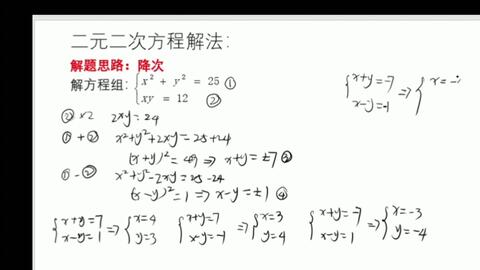 二元二次方程解法:
解题思路：降次
解方程组: { x² + y² = 25 ①
xy = 12 ②
②×2 2xy = 24
①+② x²+y²+2xy = 25+24
(x+y)² = 49 ⇒ x+y = ±7 ③
①-② x²+y²-2xy = 25-24
(x-y)² = 1 ⇒ x-y = ±1 ④
{ x+y=7 x-y=1 ⇒ { x=4 y=3 { x+y=7 x-y=-1 ⇒ { x=3 y=4 { x+y=-7 x-y=1 ⇒ { x=-3 y=-4
{ x+y=-7 x-y=-1 ⇒ { x=-